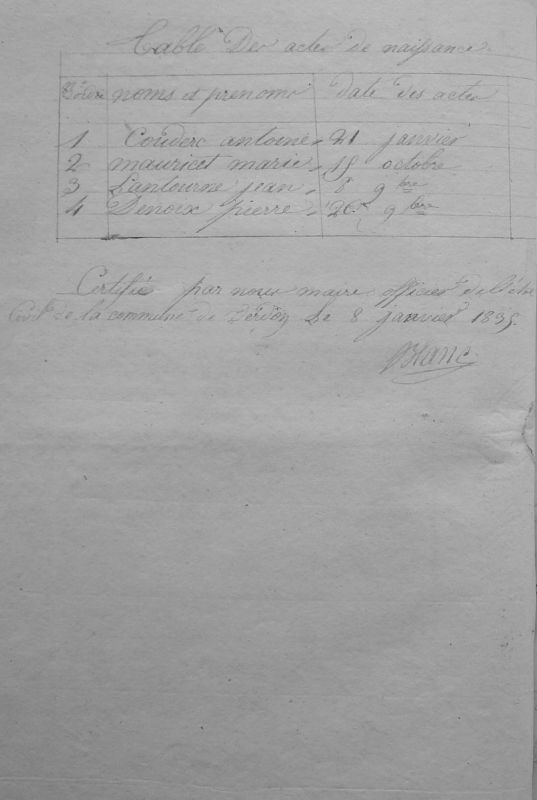 Table Des actes de naissance
noms et prenoms date des actes
1 Couderc antoine 21 janvier
2 mauricet marie 15 octobre
3 Lantourne jean 8 9bre
4 Denoix pierre 26 9bre
Certifié par nous maire officier de l'état
Civil de la commune de le 8 janvier 1835.
Blanc